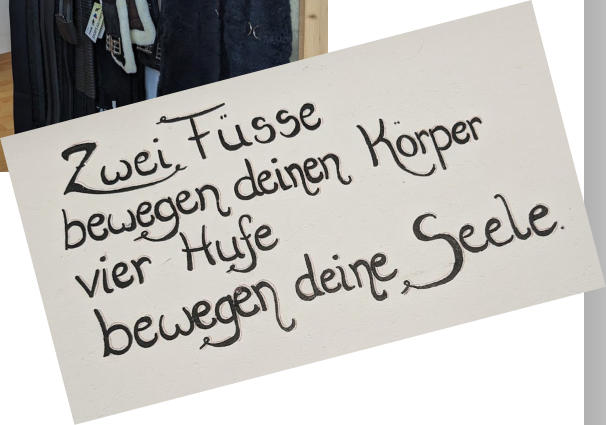 Zwei Füsse
bewegen deinen Körper
vier Hufe
bewegen deine Seele.